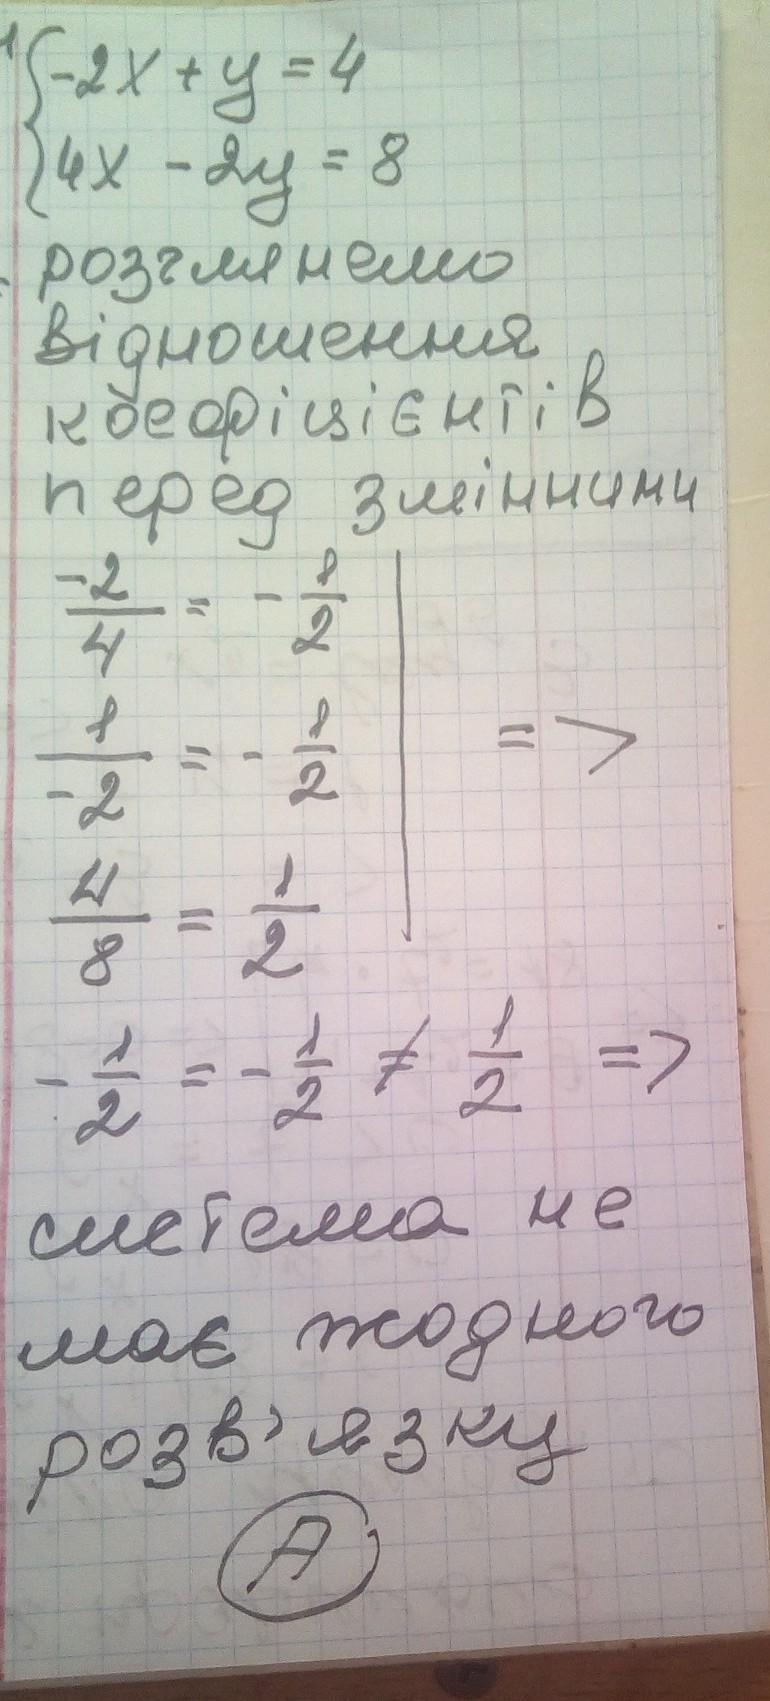 {-2x + y = 4
4x - 2y = 8
розглянемо
відношення
коефіцієнтів
перед змінними
-2/4 = - 1/2
1/-2 = - 1/2 =>
4/8 = 1/2
- 1/2 = - 1/2 ≠ 1/2 =>
система не
має жодного
розв'язку
А